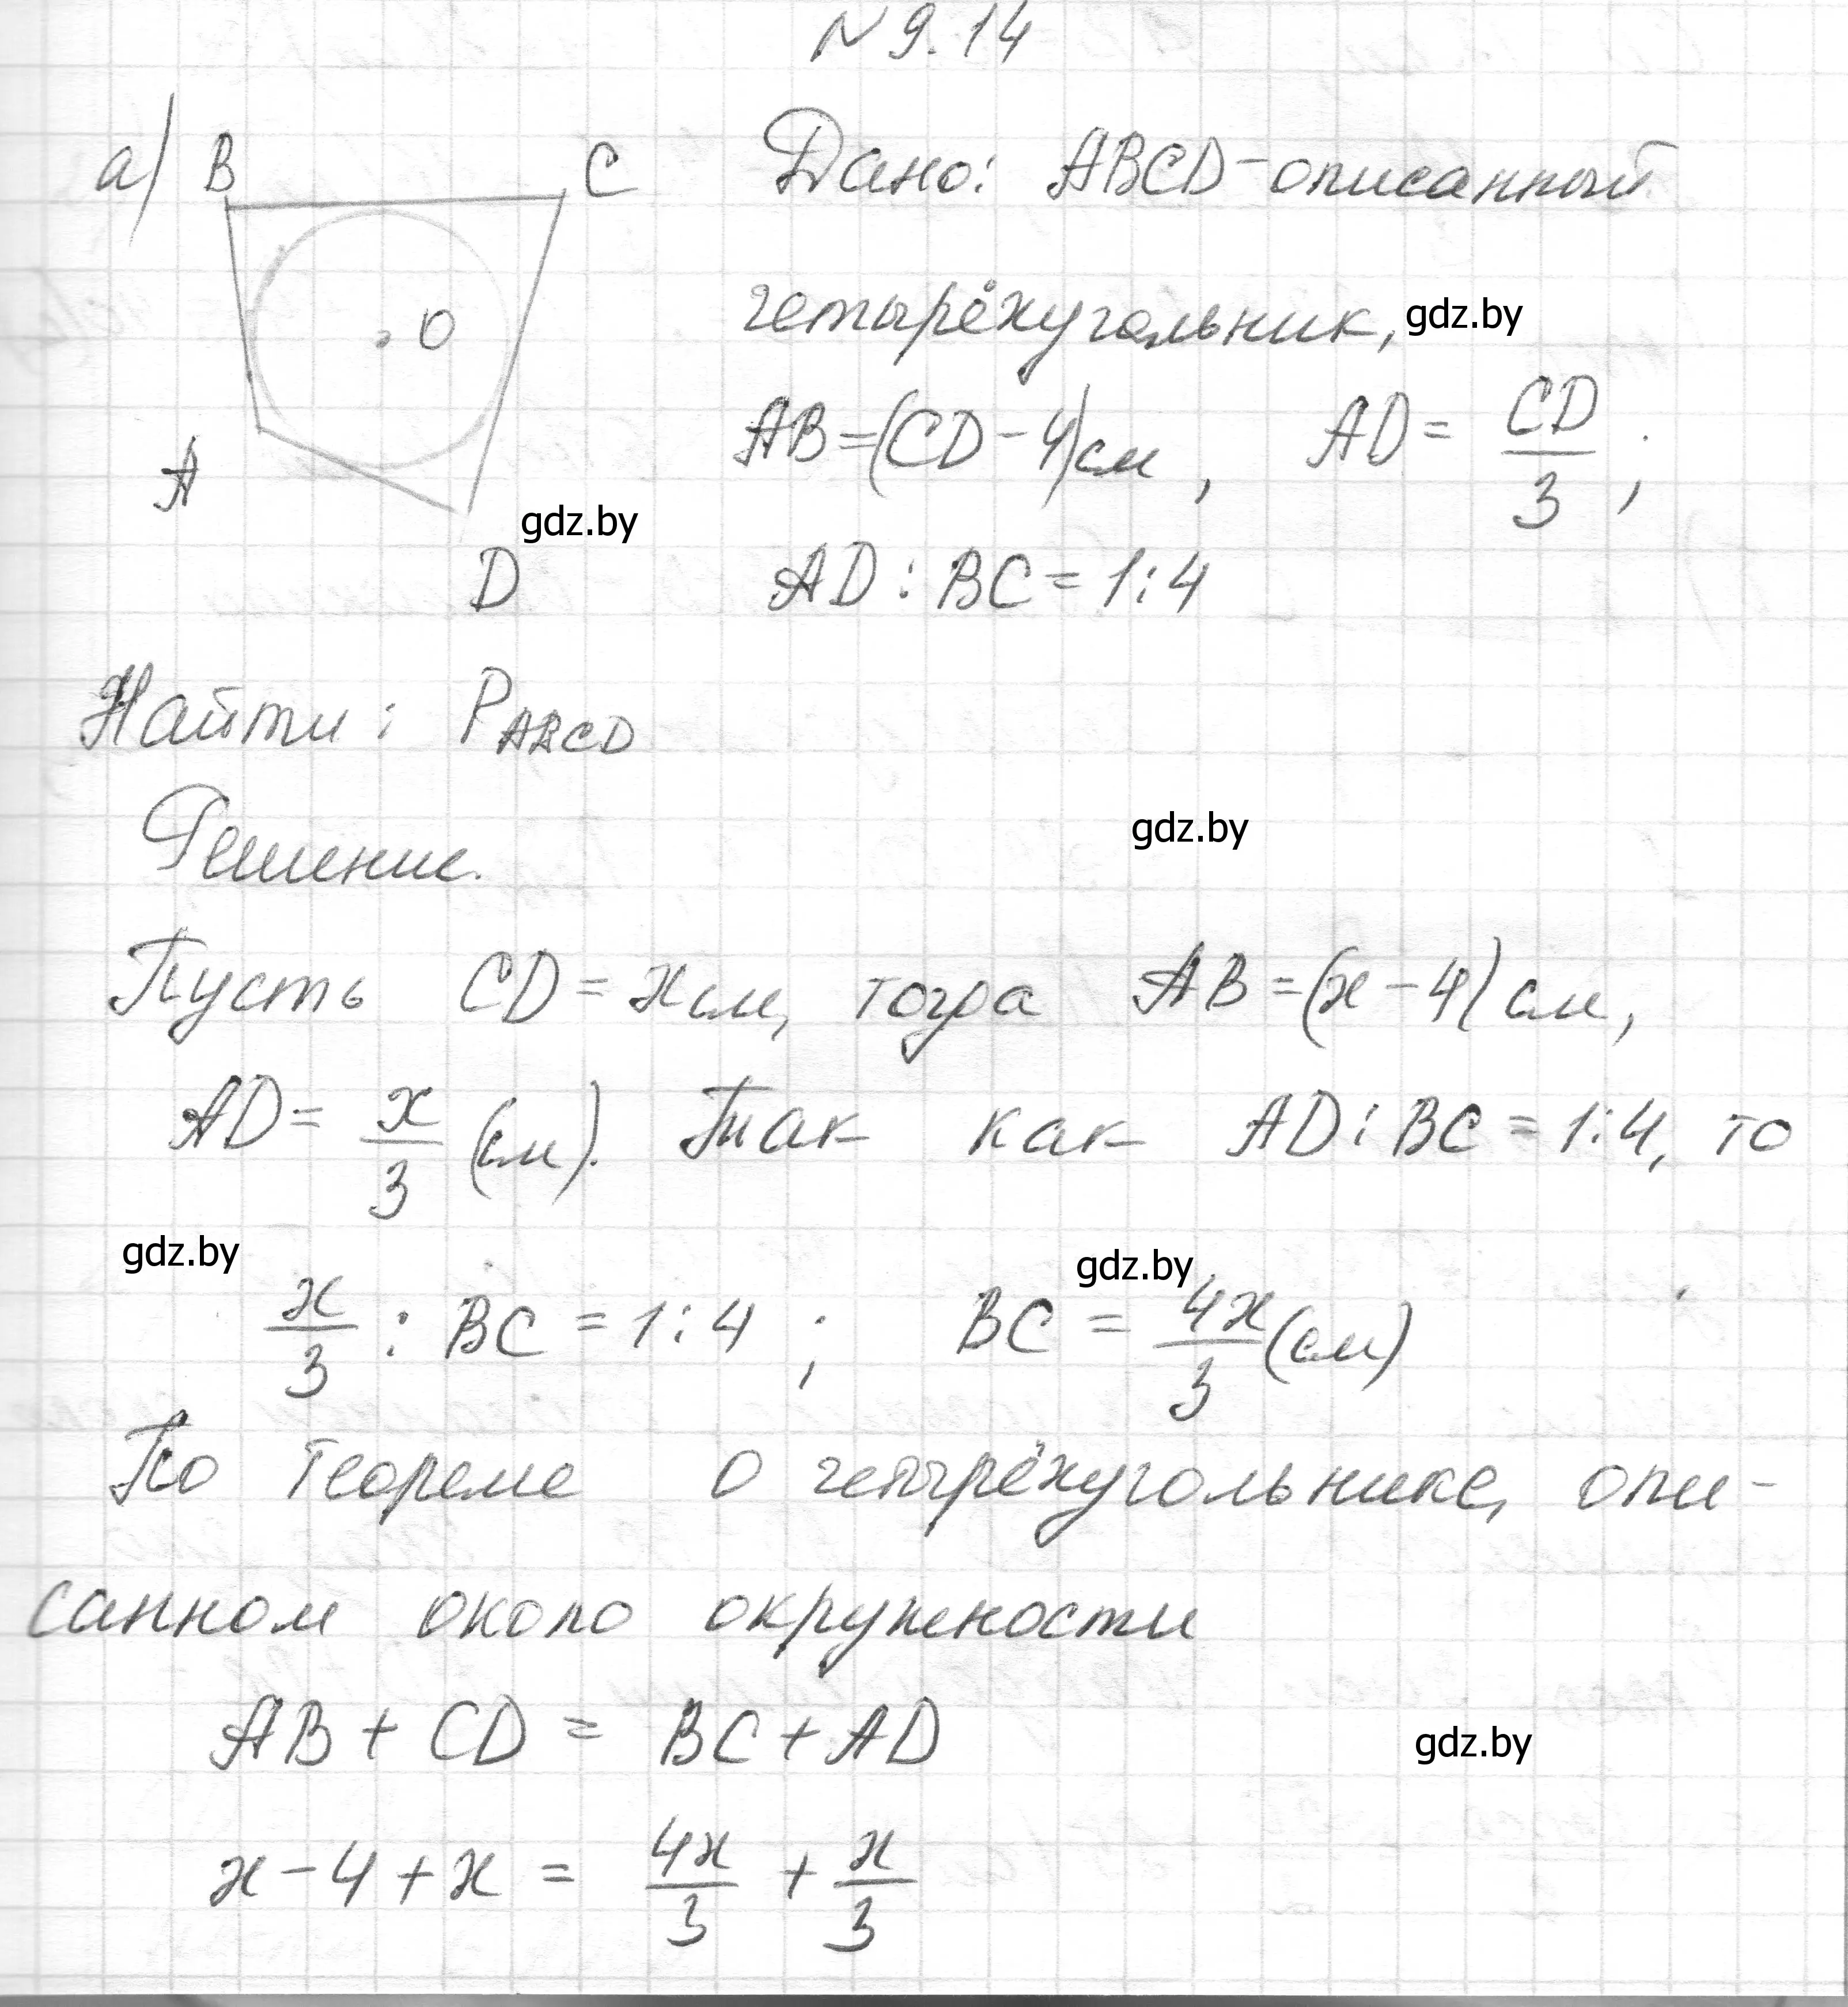 N 9.14
а) B C Дано: ABCD-описанный
O четырёхугольник, gdz.by
A AB=(CD-4)см, AD= CD/3;
gdz.by
D AD:BC=1:4
Найти: P_ABCD
gdz.by
Решение.
Пусть CD=x см, тогда AB=(x-4)см,
AD= x/3 (см). Так как AD:BC=1:4, то
gdz.by gdz.by
x/3 : BC=1:4; BC= 4x/3 (см)
По теореме о четырёхугольнике, опи-
санном около окружности
AB+CD= BC+AD
gdz.by
x-4+x= 4x/3 + x/3